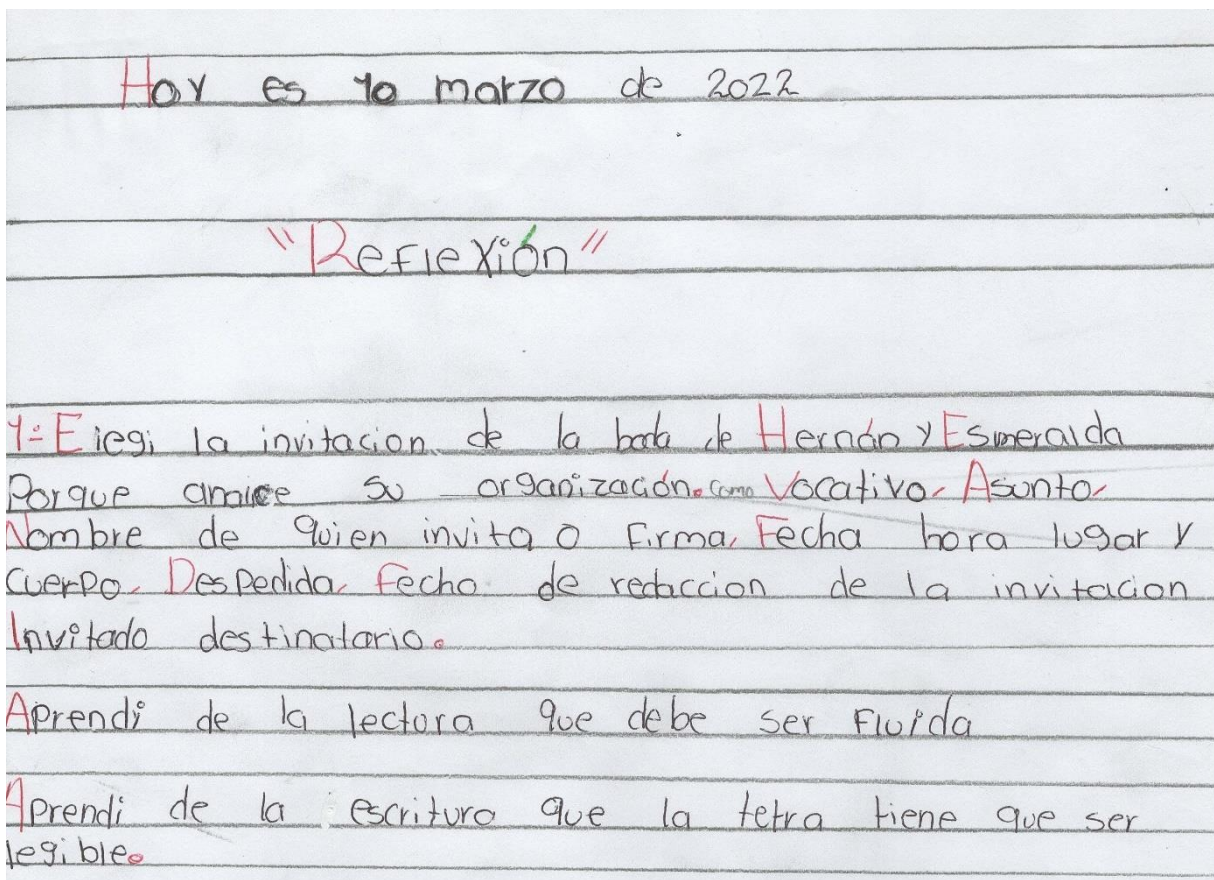 Hoy es 10 marzo de 2022
"Reflexión"
1= Elegi la invitacion de la boda de Hernán y Esmeralda
Porque analice su organización. como Vocativo, Asunto,
Nombre de quien invita o firma, Fecha hora lugar y
cuerpo, Despedida, Fecha de redaccion de la invitacion
Invitado destinatario.
Aprendi de la lectura que debe ser Fluida
Aprendi de la escritura que la letra tiene que ser
legible.